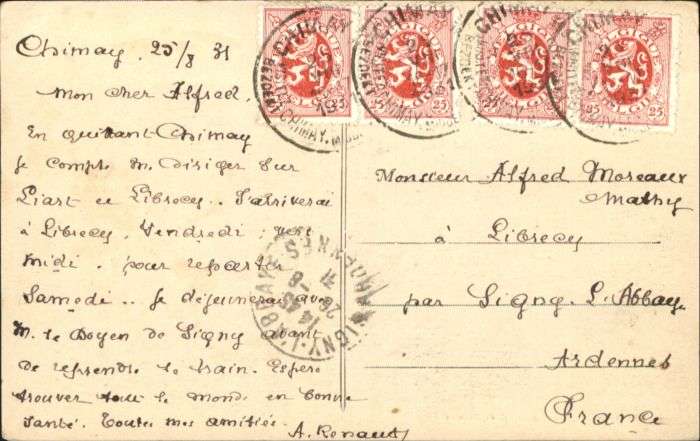 Chimay, 25/8 31
Mon cher Alfred.
En quittant Chimay
je compte m. diriger sur
Liart et Librecy.. J'arriverai
à Librecy, Vendredi
midi. pour repartir
Samedi.. Je déjeunerai avec
M. le Doyen de Signy avant
de reprendre le train. Espère
trouver tout le monde en bonne
santé. Toutes mes amitiés.
A. Renaut
CHIMAY
CHIMAY
CHIMAY
CHIMAY
BELGIQUE
BELGIË
25 25
25 25
25 25
25 25
Monsieur Alfred Moreaux
Mathy
à Librecy
par Signy. L'Abbaye
Ardennes
France
SIGNY-L'ABBAYE
ARDENNES